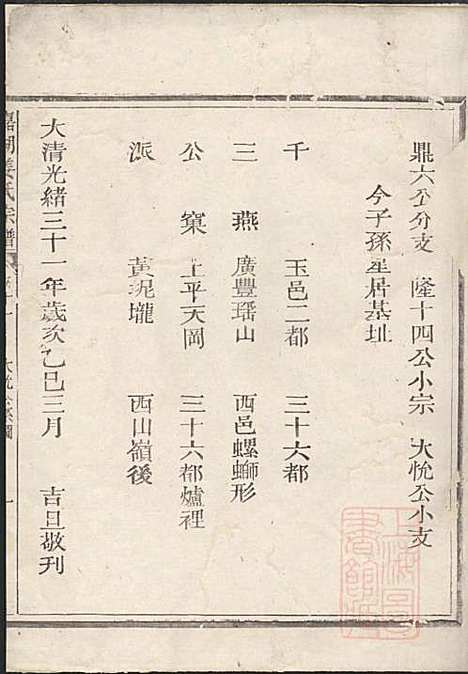 鼎六公分支 隆十四公小宗 大悅公小支
今子孫星居基址
千 玉邑二都 三十六都
三 燕 廣豐瑶山 西邑螺螄形
公 窠 上平天岡 三十六都爐裡
派 黃坭壠 西山嶺後
大清光緒三十一年歲次乙巳三月 吉旦敬刊
姜氏宗譜